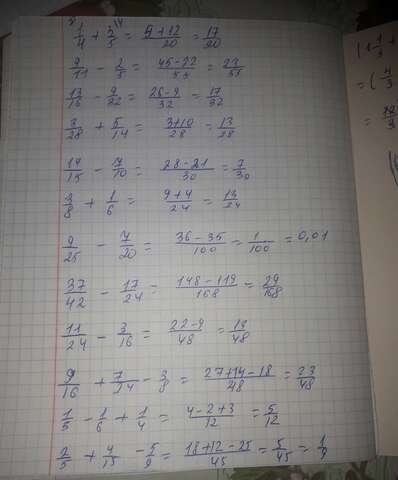 1/4 + 3/5 = (5+12)/20 = 17/20
9/11 - 2/5 = (45-22)/55 = 23/55
13/16 - 9/32 = (26-9)/32 = 17/32
3/28 + 5/14 = (3+10)/28 = 13/28
14/15 - 7/10 = (28-21)/30 = 7/30
3/8 + 1/6 = (9+4)/24 = 13/24
9/25 - 7/20 = (36-35)/100 = 1/100 = 0,01
37/42 - 17/24 = (148-119)/168 = 29/168
11/24 - 3/16 = (22-9)/48 = 13/48
9/16 + 7/24 - 3/8 = (27+14-18)/48 = 23/48
1/3 - 1/6 + 1/4 = (4-2+3)/12 = 5/12
2/5 + 4/15 - 5/9 = (18+12-25)/45 = 5/45 = 1/9